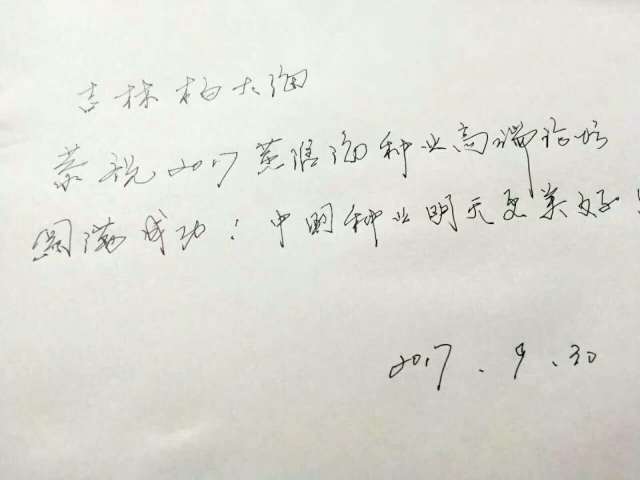 吉林柏大海
恭祝2017黄淮海种业高端论坛
圆满成功！中国种业明天更美好！
2017.9.30